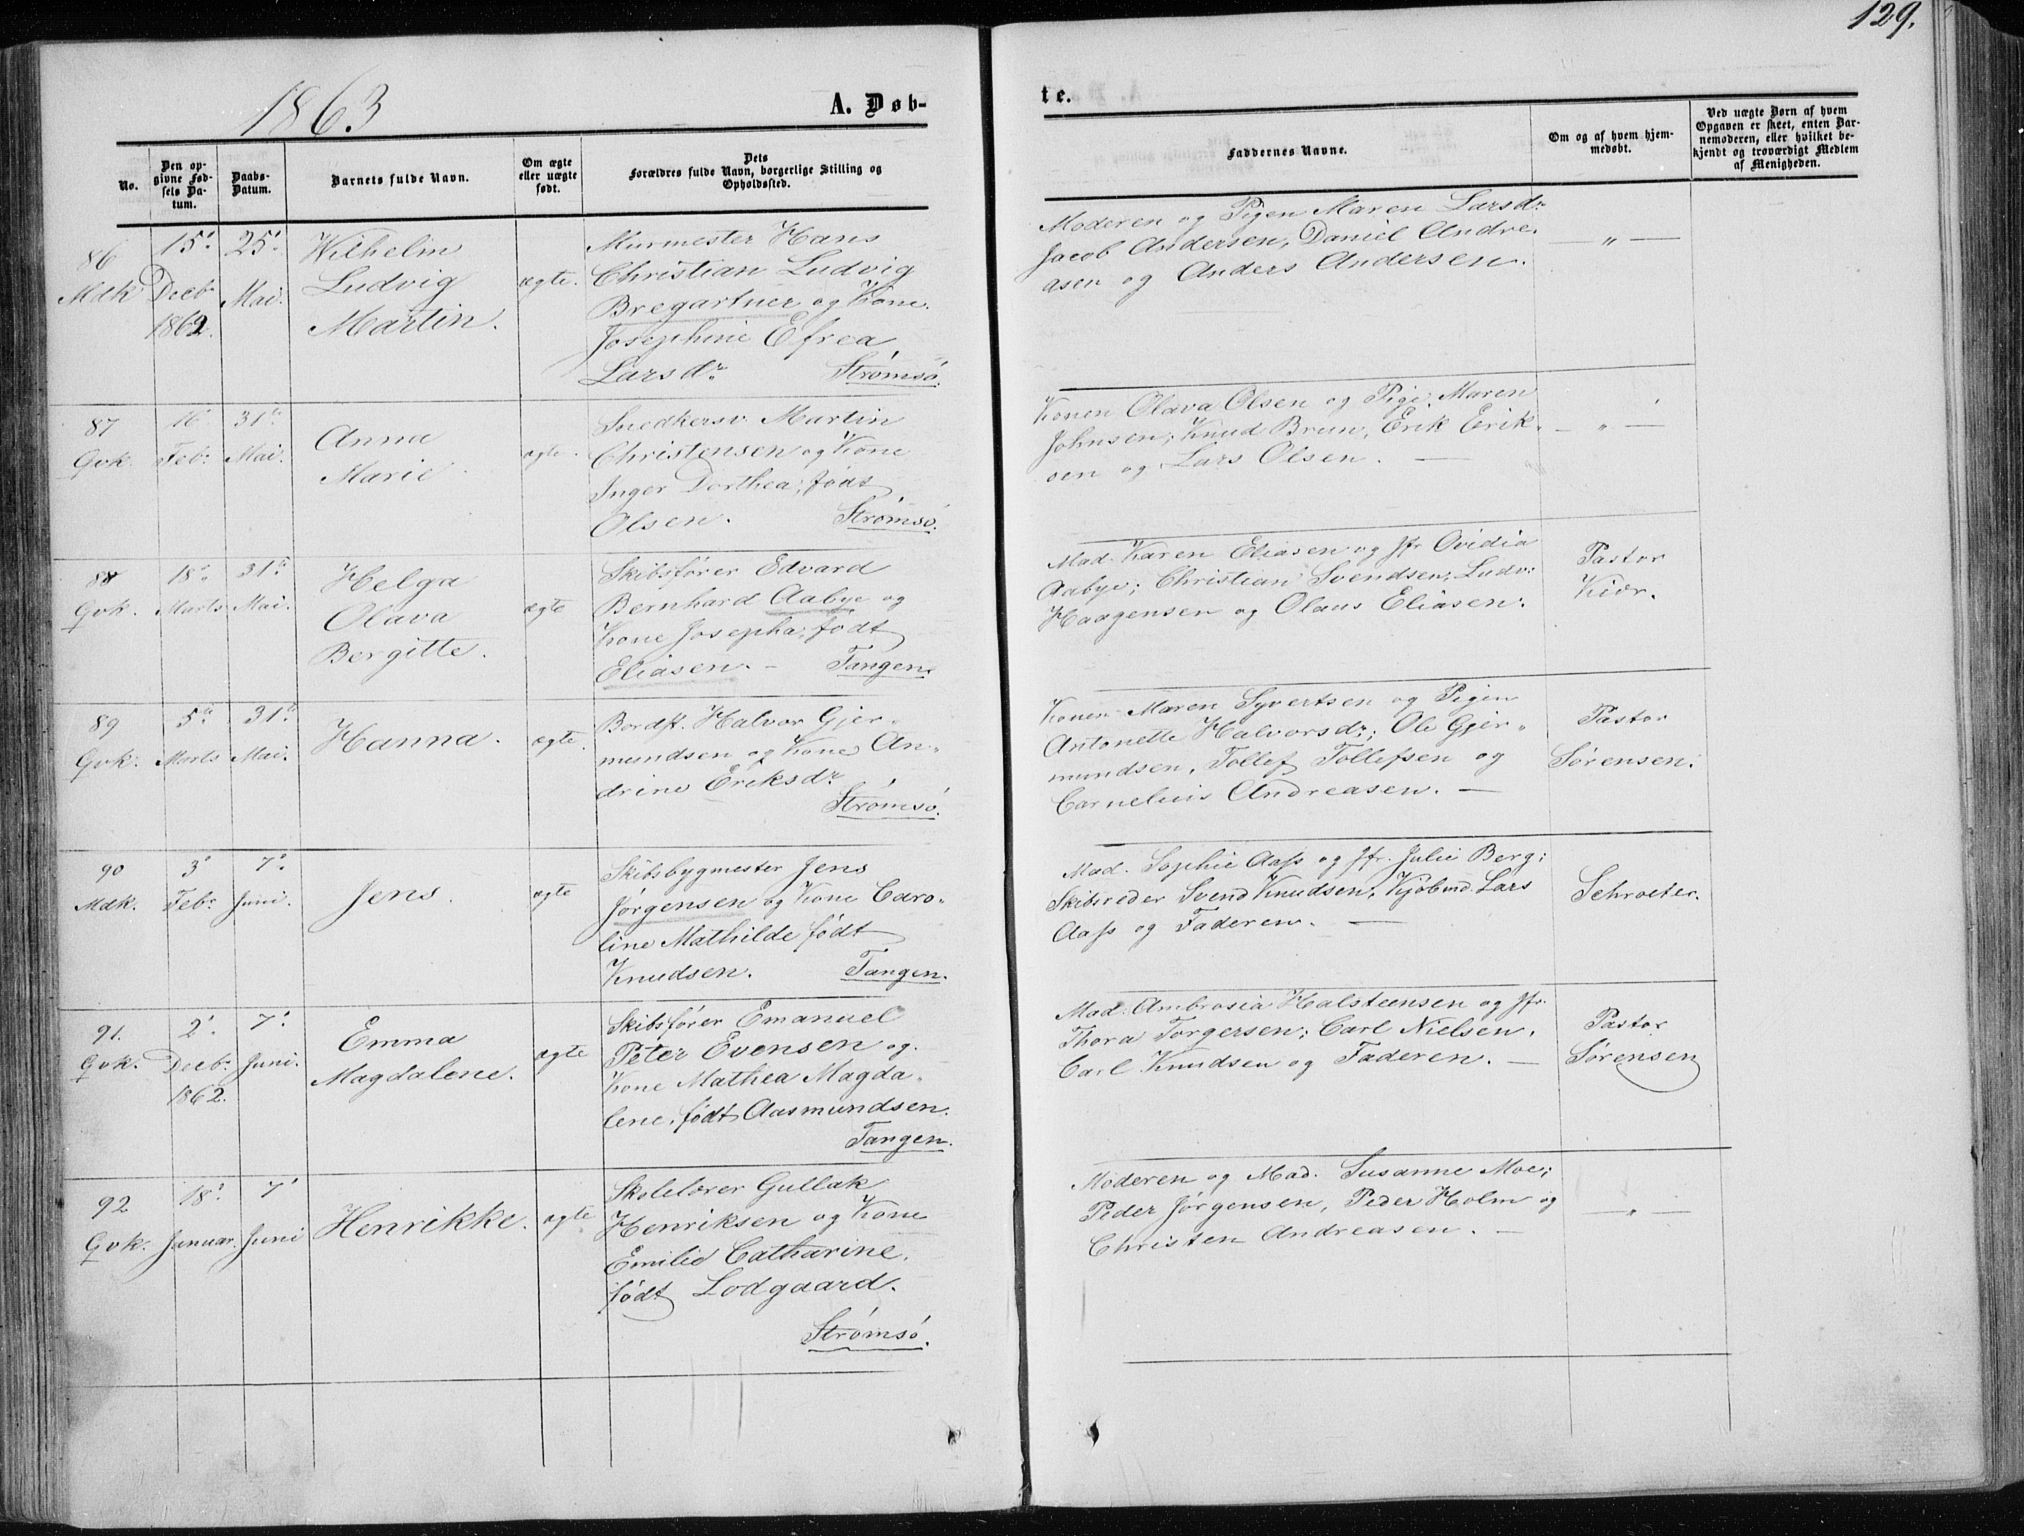 129.
1863
A. Døb-
te.
No.
Den op-
givne Fød-
sels Da-
tum.
Daabs-
Datum.
Barnets fulde Navn.
Om ægte
eller uægte
født.
Dets
Forældres fulde Navn, borgerlige Stilling og
Opholdssted.
Faddernes Navne.
Om og af hvem hjem-
medøbt.
Ved uægte Børn af hvem
Opgaven er skeet, enten Bar-
nemoderen, eller hvilket be-
kjendt og troværdigt Medlem
af Menigheden.
86
Mdk.
15'
Decb
1862.
25'
Mai.
Wilhelm
Ludvig
Martin.
ægte.
Murmester Hans
Christian Ludvig
Bregartner og Kone.
Josephine Efrea
Larsdr.
Strømsø.
Moderen og Pigen Maren Larsdr.
Jacob Andersen, Daniel Andre-
asen og Anders Andersen.
— „ —
87
Qvk.
16
Feb:
31te
Mai.
Anna
Marie
ægte.
Snedkersv. Martin
Christensen og Kone
Inger Dorthea, født
Olsen.
Strømsø.
Konen Olava Olsen og Pige. Maren
Johnsen; Knud Brun, Erik Erik-
sen og Lars Olsen. —
— „ —
88
Qvk.
18'
Marts
31te
Mai.
Helga
Olava
Bergitte.
ægte
Skibsfører Edvard
Bernhard Aabye og
Kone Josepha, født
Eliasen. —
Tangen.
Mad. Karen Eliasen og Jfr Ovidia
Aabye; Christian Svendsen, Ludv:
Haagensen og Olaus Eliasen.
Pastor
Kiær.
89
Qvk.
5te
Marts
31te
Mai.
Hanna.
ægte.
Bordsk. Halvor Gjer-
mundsen og Kone An-
drine Eriksdr
Strømsø.
Konen Maren Syvertsen og Pigen
Antonette Halvorsdr; Ole Gjer-
mundsen, Tollef Tollefsen og
Cornelius Andreasen. —
Pastor
Sørensen.
90
Mdk.
3'
Febr
7'
Juni.
Jens.
ægte
Skibsbygmester Jens
Jørgensen og Kone Caro-
line Mathilde født
Knudsen.
Tangen.
Mad. Sophie Aass og Jfr. Julie Berg;
Skibsreder Svend Knudsen, Kjøbmd. Lars
Aass og Faderen. —
Schroeter.
91.
Qvk.
2'
Decbr
1862.
7'
Juni.
Emma
Magdalene.
ægte
Skibsfører Emanuel
Peter Evensen og
Kone Mathea Magda-
lene, født Aasmundsen.
Tangen.
Mad. Ambrosia Halsteensen og Jfr.
Thora Torgersen; Carl Nielsen,
Carl Knudsen og Faderen. —
Pastor
Sørensen
92
Qvk.
18'
Januar.
7'
Juni
Henrikke.
ægte
Skolelærer Gullak
Henriksen og Kone
Emilie Catharine,
født Lodgaard.
Strømsø.
Moderen og Mad. Susanne Moe;
Peder Jørgensen, Peder Holm og
Christen Andreasen. —
— „ —